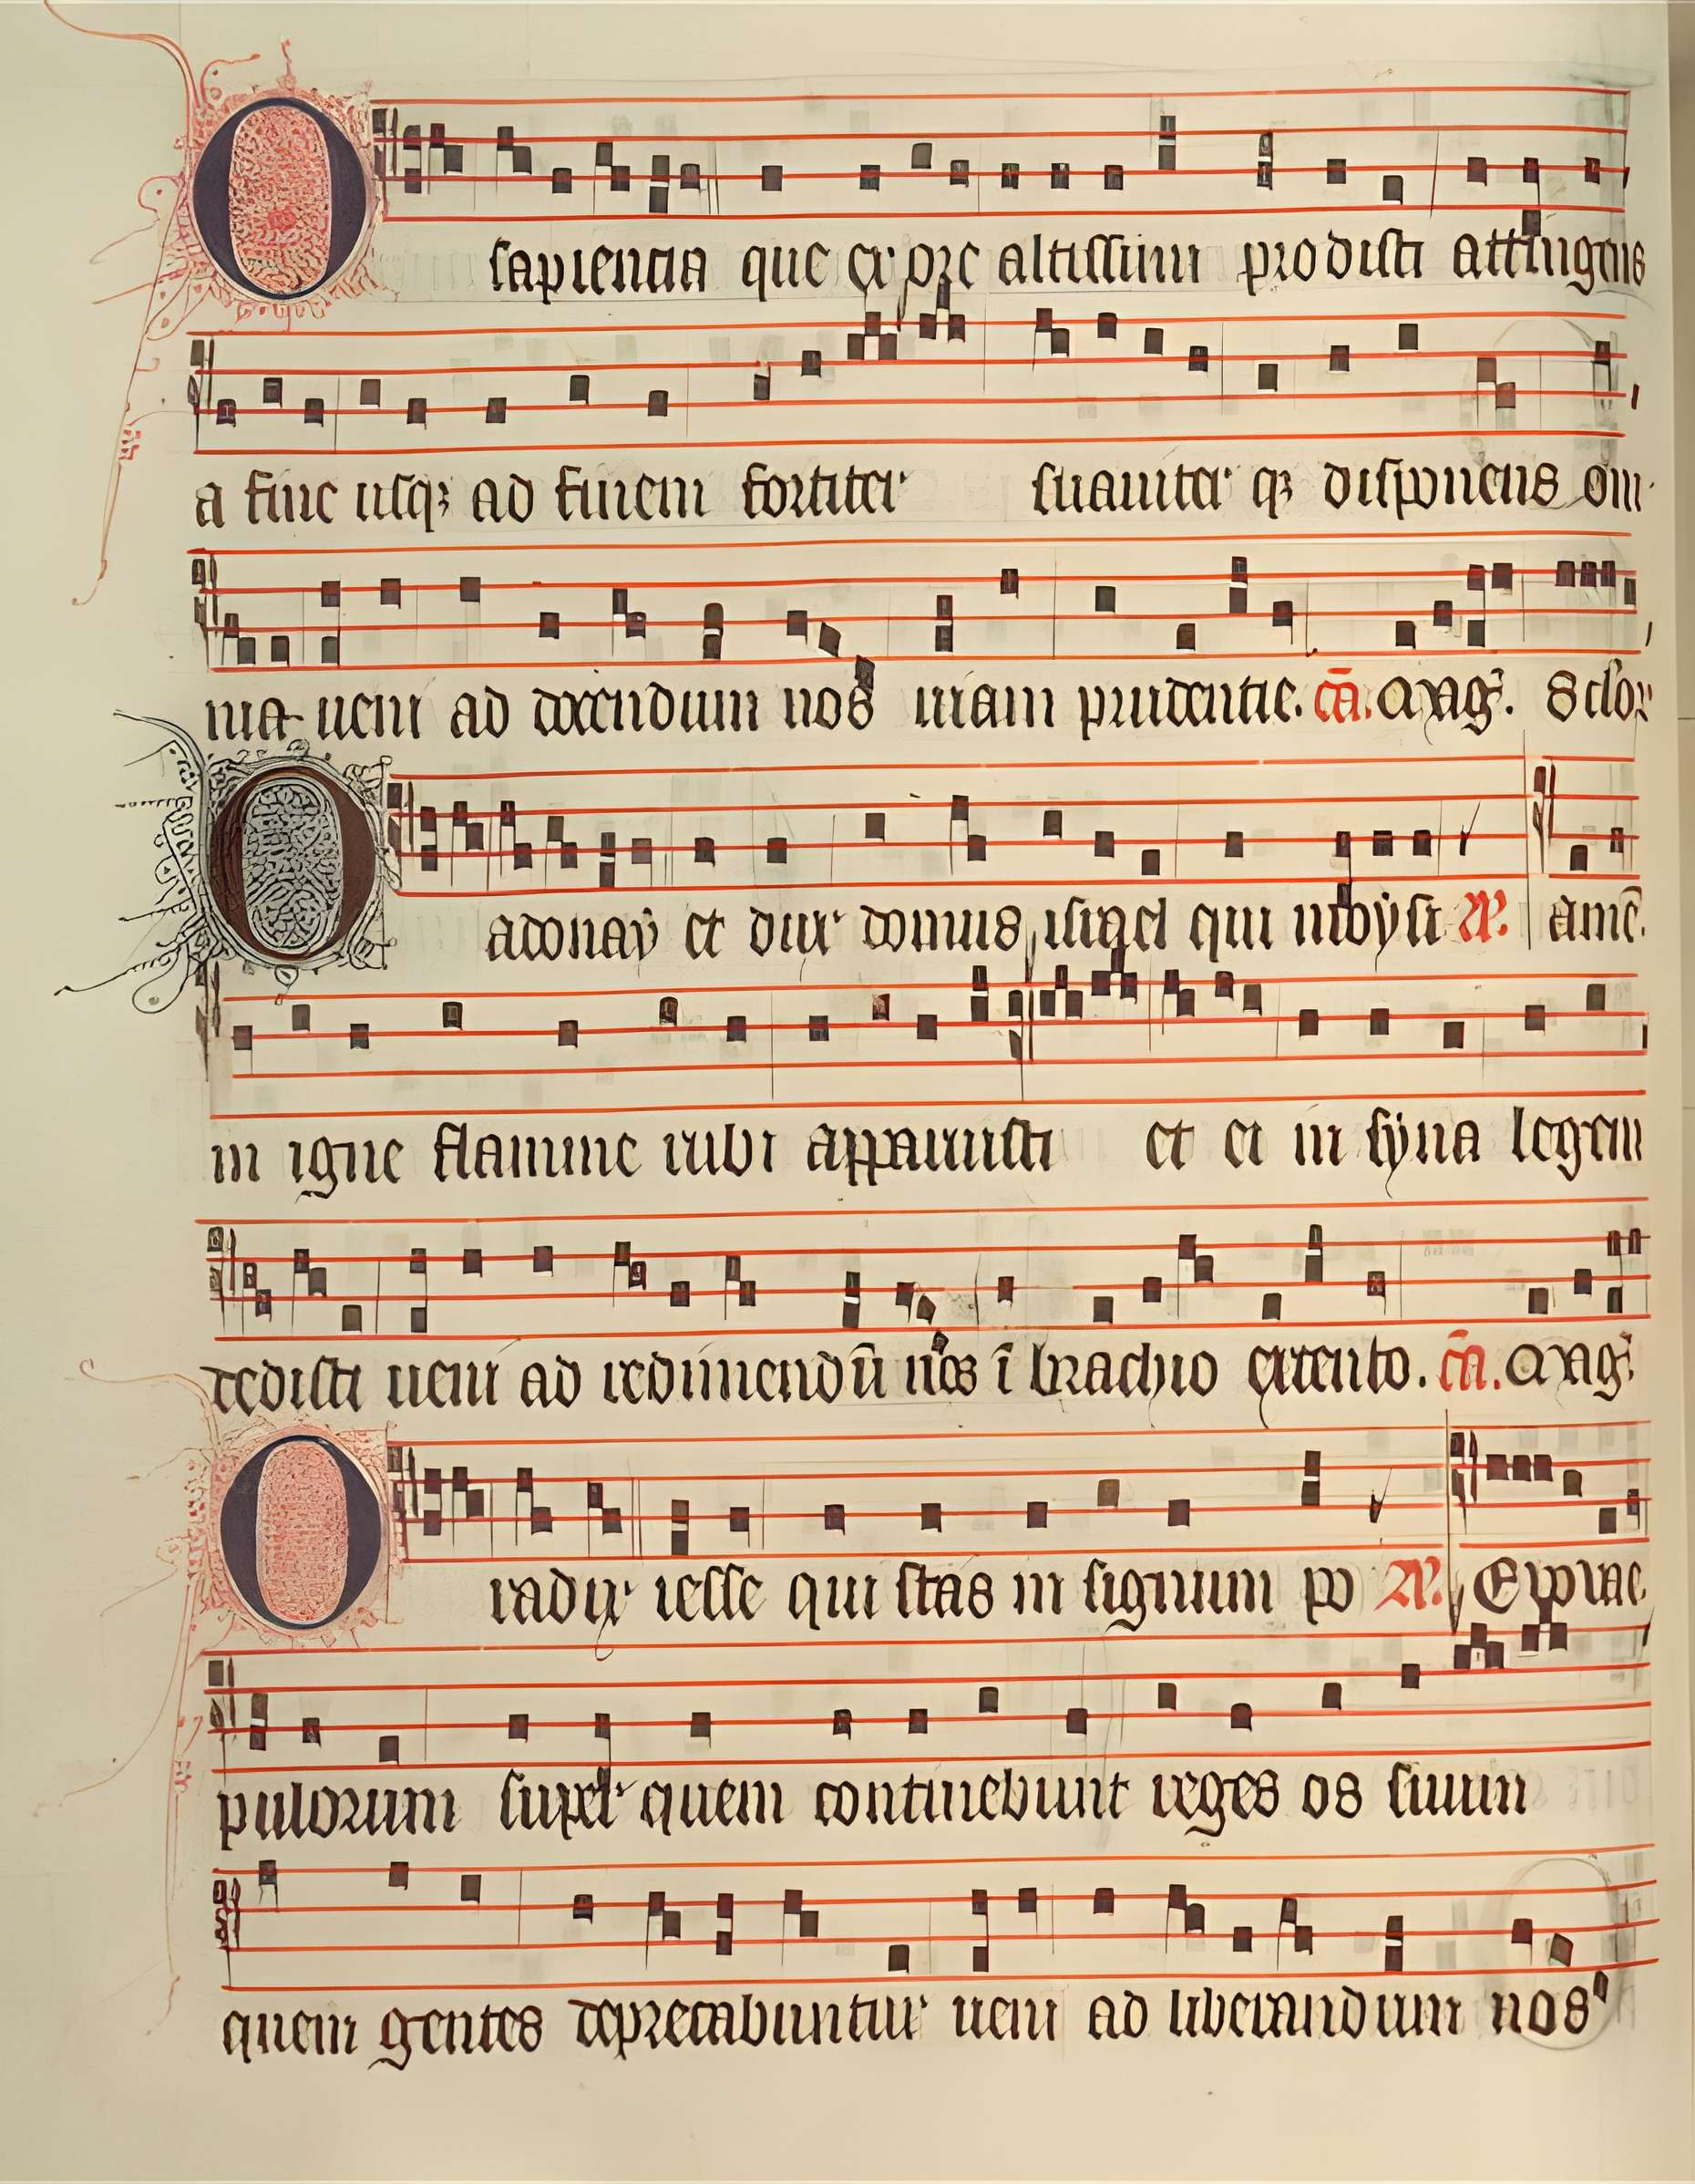 O sapientia que ex ore altissimi prodisti attingens
a fine usqꝫ ad finem fortiter suauiter qꝫ disponens om
nia ueni ad docendum nos uiam prudentie. c̄a. Mag̃. Sclor̃
O adonay et dux domus israel qui moysi amē.
in igne flamme rubi apparuisti et ei in syna legem
dedisti ueni ad redimendū nos ī brachio extento. c̄a. Mag̃.
O radix iesse qui stas in signum po Euouae
pulorum super quem continebunt reges os suum
quem gentes deprecabuntur ueni ad liberandum nos